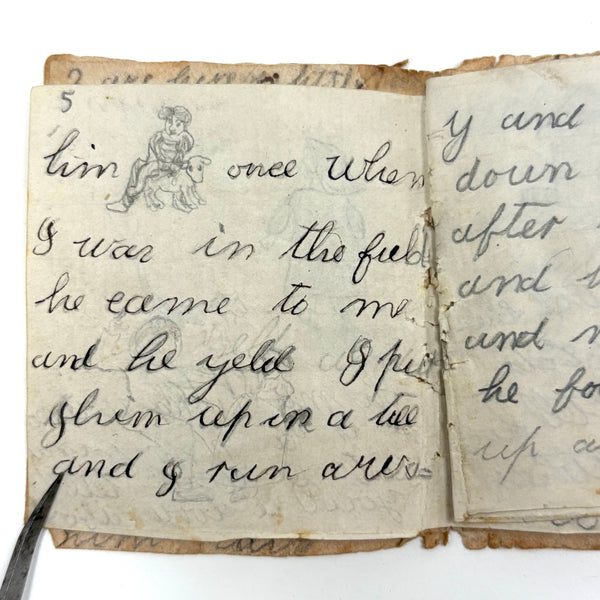 2 are
5
him once when
I was in the field
he came to me
and he yeld I put
him up in a tee
and I run
y and
down
after
and
and
he
up